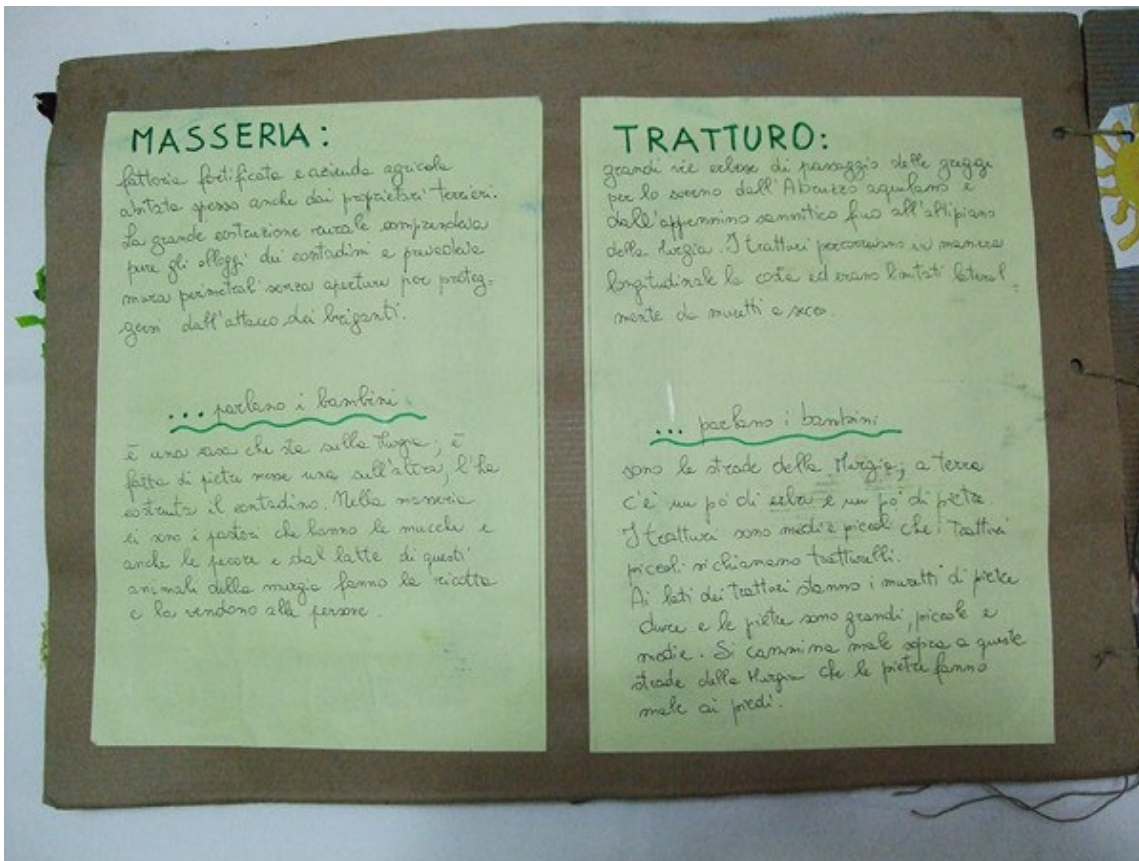 MASSERIA:
fattoria fortificata e azienda agricola
abitata spesso anche dai proprietari terrieri.
La grande costruzione rurale comprendeva
pure gli alloggi dei contadini e prevedeva
mura perimetrali senza aperture per proteg=
gersi dall'attacco dei briganti.
... parlano i bambini
è una casa che sta sulla Murgia; è
fatta di pietre messe una sull'altra, l'ha
costruita il contadino. Nella masseria
ci sono i pastori che hanno le mucche e
anche le pecore e dal latte di questi
animali della murgia fanno la ricotta
e la vendono alle persone.
TRATTURO:
grandi vie erbose di passaggio delle greggi
per lo sverno dall'Abruzzo aquilano e
dall'appennino sannitico fino all'altipiano
della Murgia. I tratturi percorrevano in maniera
longitudinale la costa ed erano limitati lateral=
mente da muretti a secco.
... parlano i bambini
sono le strade della Murgia; a terra
c'è un pò di erba e un pò di pietre
I tratturi sono medi e piccoli che i tratturi
piccoli si chiamano tratturelli.
Ai lati dei tratturi stanno i muretti di pietre
dure e le pietre sono grandi, piccole e
medie. Si cammina male sopra a queste
strade della Murgia che le pietre fanno
male ai piedi.